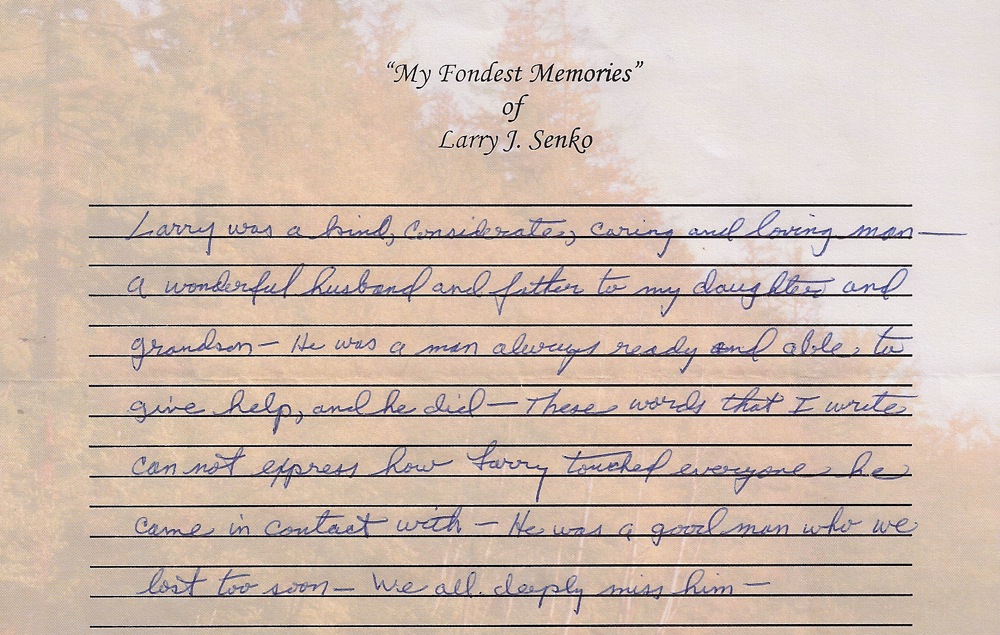 “My Fondest Memories”
of
Larry J. Senko
Larry was a kind, considerate, caring and loving man—
a wonderful husband and father to my daughter and
grandson— He was a man always ready and able to
give help, and he did— These words that I write
can not express how Larry touched everyone he
came in contact with — He was a good man who we
lost too soon— We all deeply miss him—